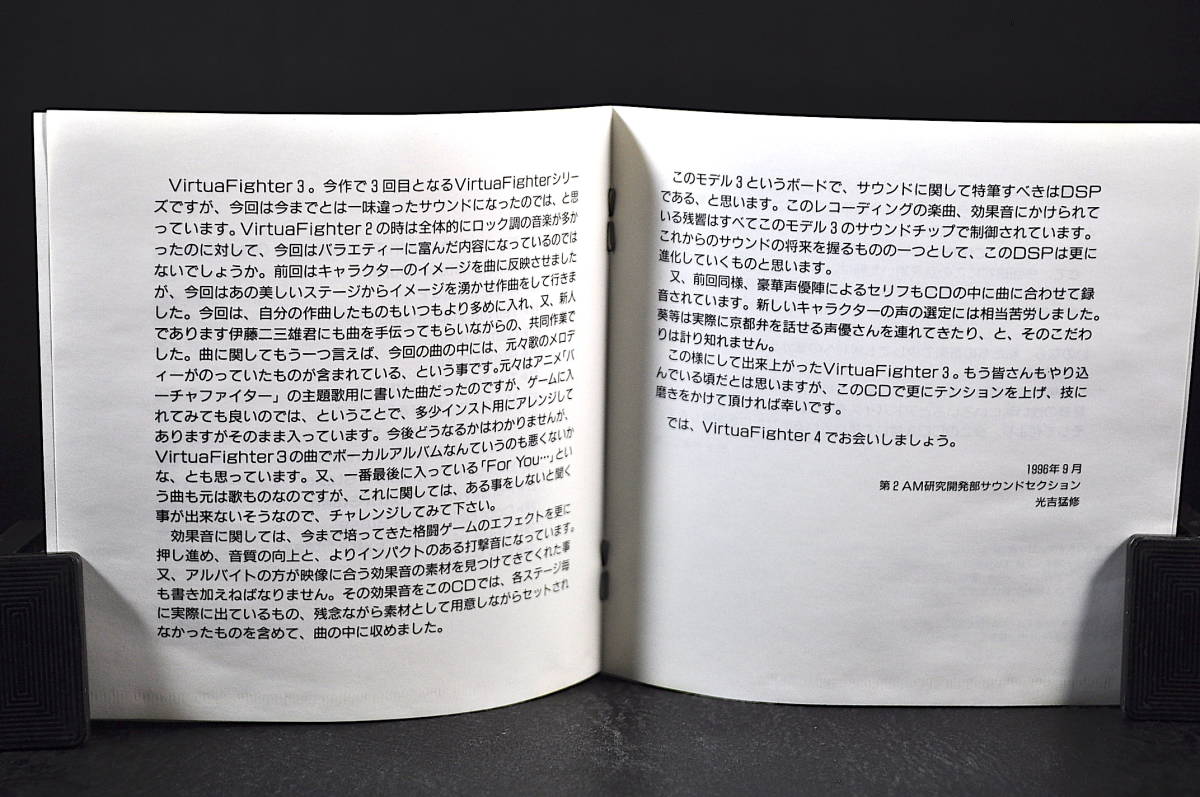 VirtuaFighter 3。今作で3回目となるVirtuaFighterシリー
ズですが、今回は今までとは一味違ったサウンドになったのでは、と思
っています。VirtuaFighter 2の時は全体的にロック調の音楽が多か
ったのに対して、今回はバラエティーに富んだ内容になっているのでは
ないでしょうか。前回はキャラクターのイメージを曲に反映させました
が、今回はあの美しいステージからイメージを湧かせ作曲をして行きま
した。今回は、自分の作曲したものもいつもより多めに入れ、又、新人
であります伊藤二三雄君にも曲を手伝ってもらいながらの、共同作業で
した。曲に関してもう一つ言えば、今回の曲の中には、元々歌のメロデ
ィーがのっていたものが含まれている、という事です。元々はアニメ「バ
ーチャファイター」の主題歌用に書いた曲だったのですが、ゲームに入
れてみても良いのでは、ということで、多少インスト用にアレンジして
ありますがそのまま入っています。今後どうなるかはわかりませんが、
VirtuaFighter 3の曲でボーカルアルバムなんていうのも悪くないか
な、とも思っています。又、一番最後に入っている「For You…」とい
う曲も元は歌ものなのですが、これに関しては、ある事をしないと聞く
事が出来ないそうなので、チャレンジしてみて下さい。
効果音に関しては、今まで培ってきた格闘ゲームのエフェクトを更に
押し進め、音質の向上と、よりインパクトのある打撃音になっています。
又、アルバイトの方が映像に合う効果音の素材を見つけてきてくれた事
も書き加えねばなりません。その効果音をこのCDでは、各ステージ毎
に実際に出ているもの、残念ながら素材として用意しながらセットされ
なかったものを含めて、曲の中に収めました。
このモデル3というボードで、サウンドに関して特筆すべきはDSP
である、と思います。このレコーディングの楽曲、効果音にかけられて
いる残響はすべてこのモデル3のサウンドチップで制御されています。
これからのサウンドの将来を握るものの一つとして、このDSPは更に
進化していくものと思います。
又、前回同様、豪華声優陣によるセリフもCDの中に曲に合わせて録
音されています。新しいキャラクターの声の選定には相当苦労しました。
葵等は実際に京都弁を話せる声優さんを連れてきたり、と、そのこだわ
りは計り知れません。
この様にして出来上がったVirtuaFighter 3。もう皆さんもやり込
んでいる頃だとは思いますが、このCDで更にテンションを上げ、技に
磨きをかけて頂ければ幸いです。
では、VirtuaFighter 4でお会いしましょう。
1996年9月
第2AM研究開発部サウンドセクション
光吉猛修